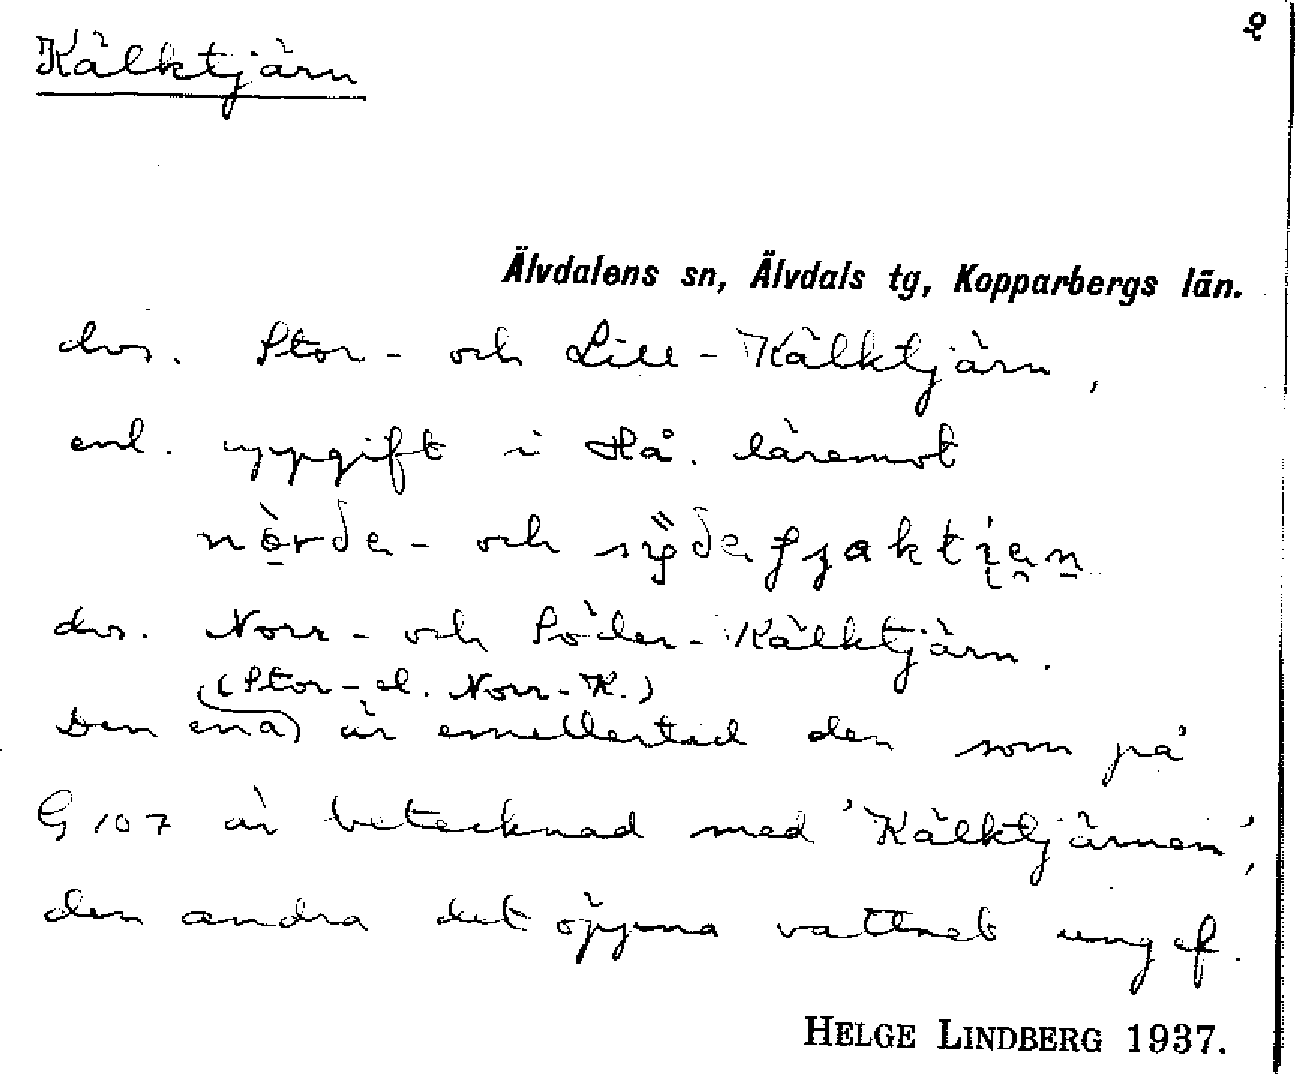 2
Kälktjärn
Älvdalens sn, Älvdals tg, Kopparbergs län.
dvs. Stor- och Lill-Kälktjärn,
enl. uppgift i Hå. däremot
nòrde- och
dvs. Norr- och Söder-Kälktjärn.
(Stor- el. Norr-K.)
Den ena är emellertid den som på
G 107 är betecknad med 'Kälktjärnen',
den andra det öppna vattnet ung f.
HELGE LINDBERG 1937.